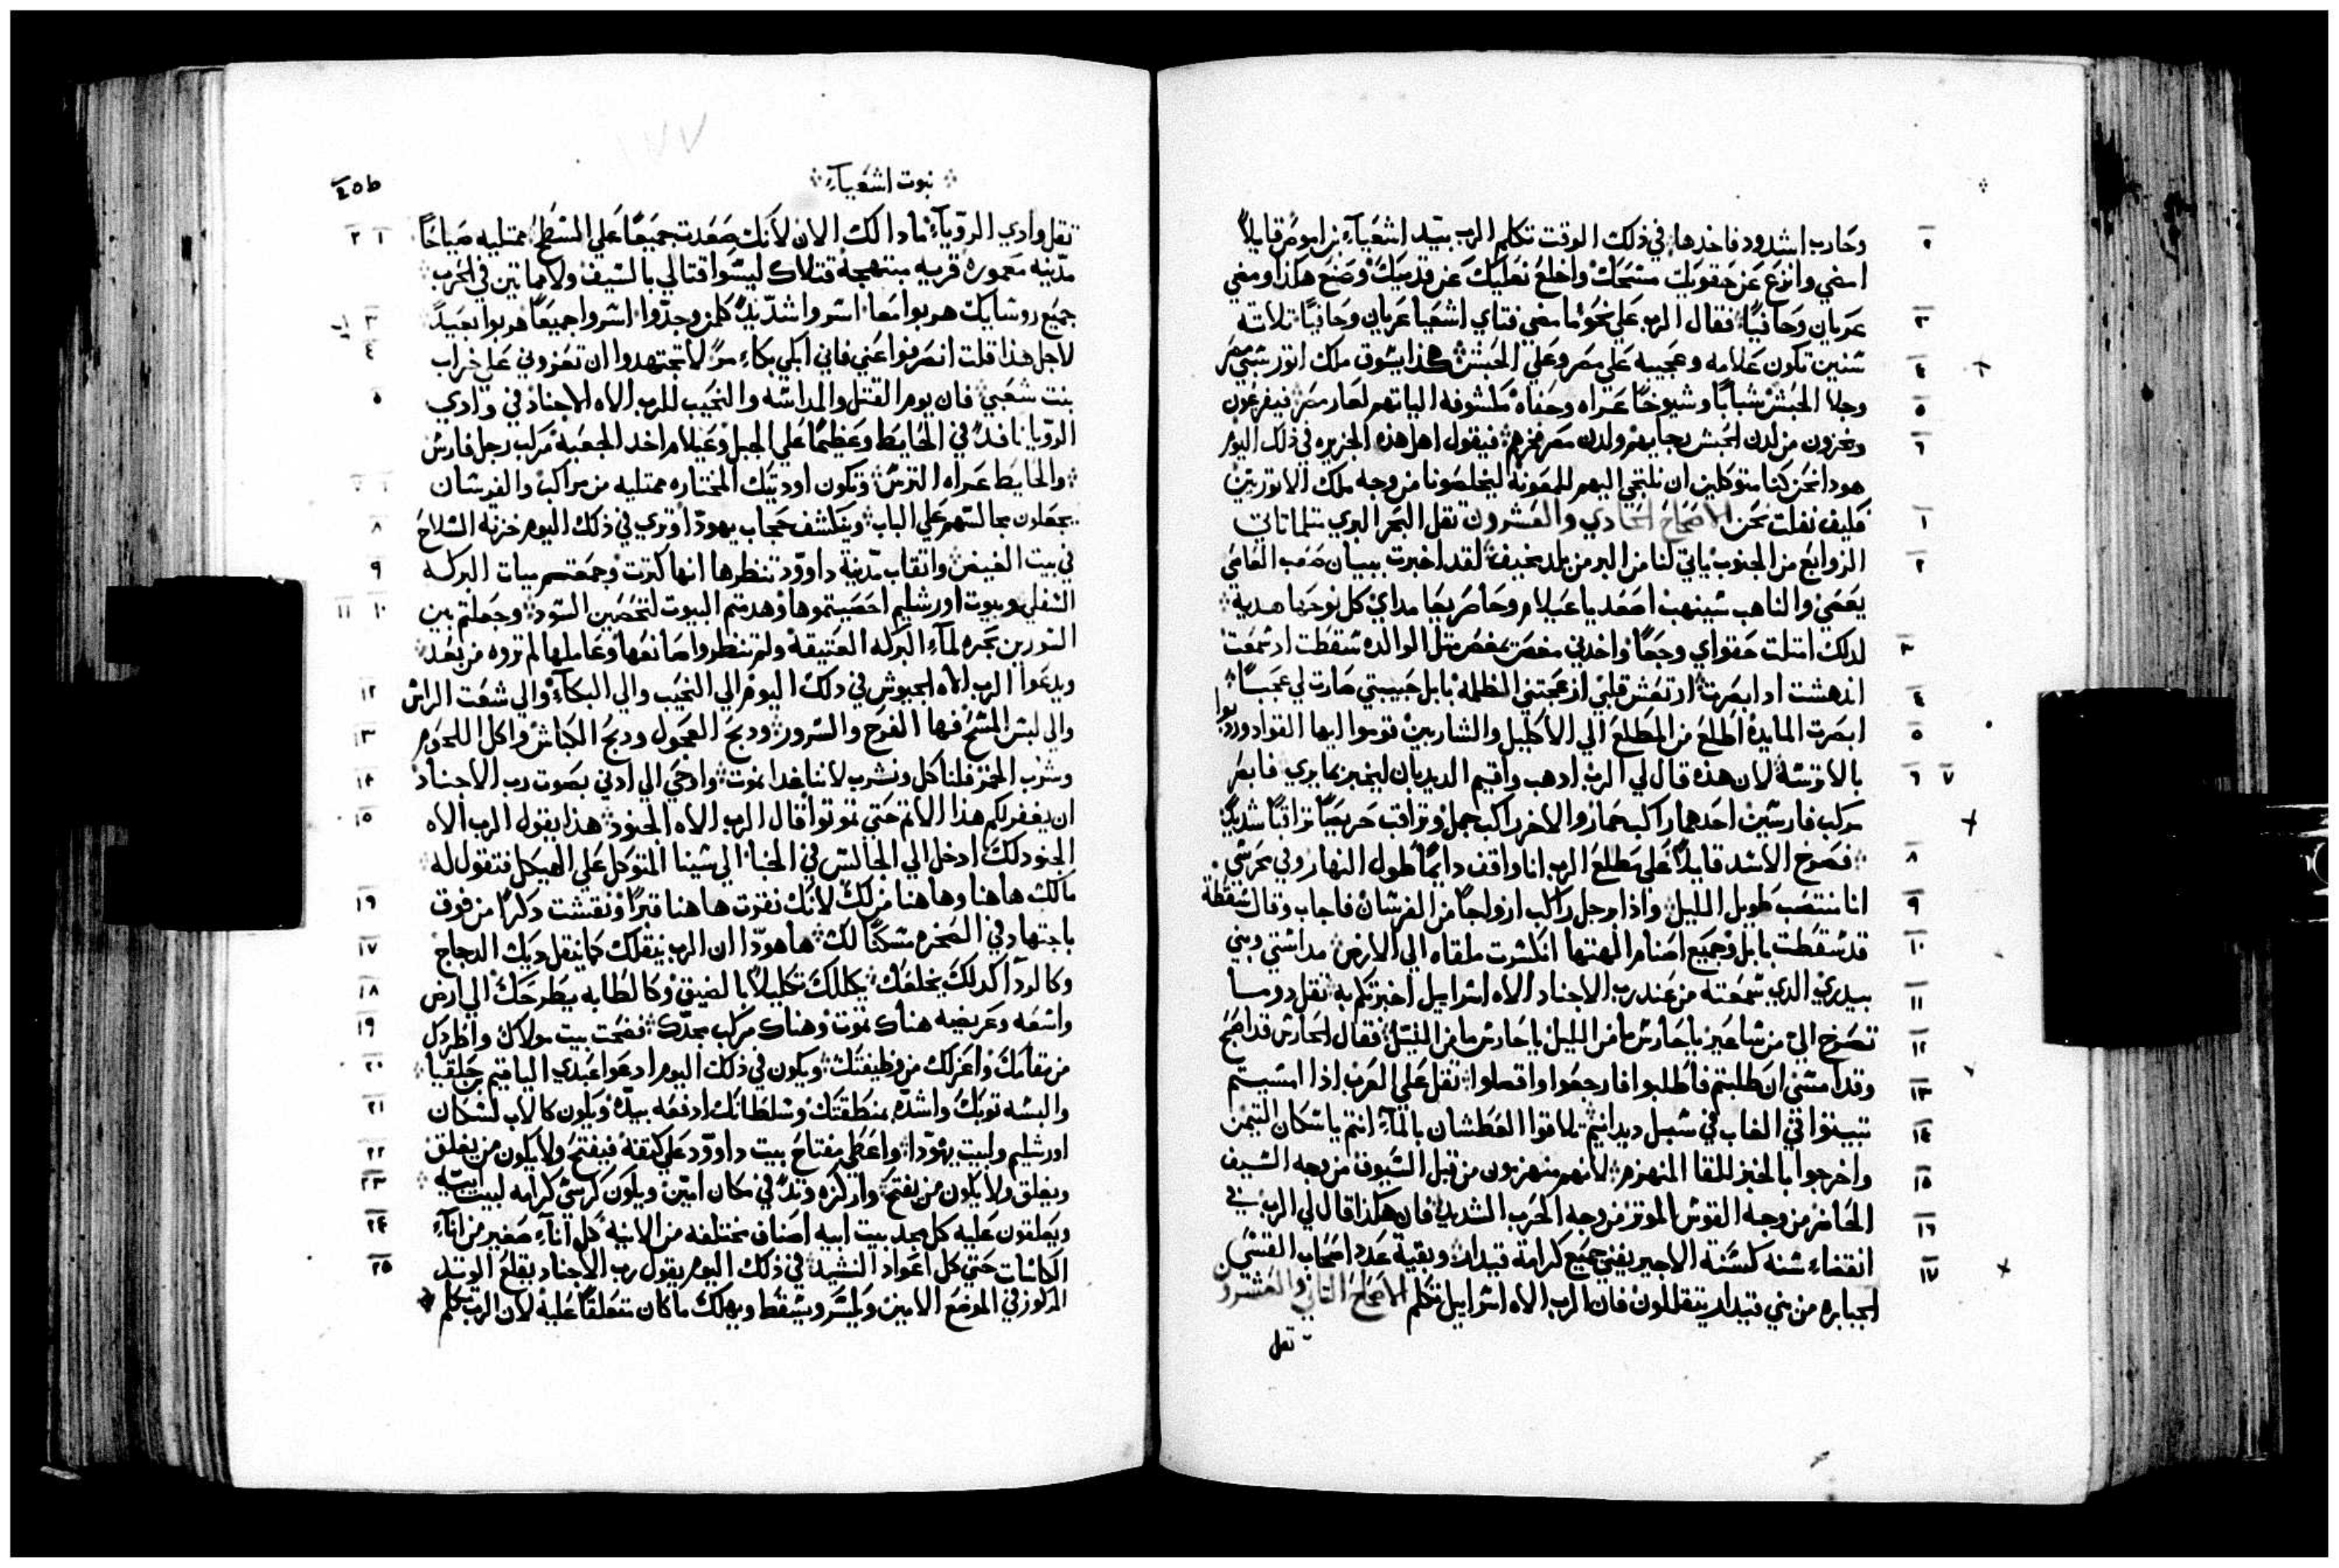 وحارب اشدود فاخدها في ذلك الوقت تكلم الرب بيد اشعيآء بن اموص قايلاً
٢
امضي وانزع عن حقويك مسحك واخلع نعليك عن قدميك وصنع هكذا ومضي
عريان وحافيًا فقال الرب علي نحو ما مضي فتاي اشعيا عريان وحافيًا تلاته
٣
سنين تكون علامه وعجيبه علي مصر وعلي الحبش هكذا يسوق ملك اتور سبي مصر
٤
وجلا الحبش شبابًا وشيوخًا عراه وحفاه مكشوفه الياتهم لعار مصر فيفزعون
٥
ويخزون من لدن الحبش رجايهم ولدن مصر فخرهم فيقول اهل هذه الجزيره في ذلك اليوم
٦
هودا نحن كنا متوكلين ان نلتجي اليهم للمعونه ليخلصونا من وجه ملك الاتوريين
فكيف نفلت نحن الاصحاح الحادي والعشرون تقل البحر البري متلما تاتي
١
الزوابع من الجنوب ياتي لنا من البر من بلد مخيف لقد اخبرت ببيان صعب العاصي
٢
يعصي والناهب سينهب اصعد يا عيلام وحاصر بها ماداي كل نوحها هدية
لدلك امتلت حقواي وجعًا واخدني مغص كمغص متل الوالده سقطت اد سمعت
٣
اندهشت ادا بصرت ارتعش قلبي ازعجتني الظلمه بابل حبيبتي صارت لي عجبًا
٤
ابصرت المايده اطلع من المطلع الي الاكلين والشاربين قوموا ايها القواد وردوا
٥
بالاترسه لان هذه قال لي الرب ادهب واقيم الديدبان ليخبر بما يري فابصر
٦ ٧
مركب فارسين احدهما راكب حمار والاخر راكب جمل وتراقب حريصًا تراقبًا شديدًا
فصرخ الاسد قايلاً علي مطلع الرب انا واقف دايمًا طول النهار وفي محرسي
٨
انا منتصب طويل الليل واذا رجل راكب ازواجًا من الفرسان فاجاب وقال سقطة
٩
قد سقطت بابل وجميع اصنام الهتها انكسرت ملقاه الي الارض مداستي وبني
١٠
بيدري الدي سمعته من عند رب الاجناد الاه اسراييل اخبرتكم به تقل دوما
١١
تصرخ اليّ من ساعير يا حارس ما من الليل يا حارس ما من الليل فقال الحارس قد اصبح
١٢
وقد امسي ان طلبتم فاطلبوا فارجعوا واقبلوا تقل علي العرب اذا امسيتم
١٣
تبيتوا في الغاب في سبل ديدانيم تلاقوا العطشان بالمآء انتم يا سكان التيمن
١٤
واخرجوا بالخبز للقا المنهزم لانهم منهزمون من قبل السيوف من وجه السيف
١٥
الحاضر من وجه القوس الموتر من وجه الحرب الشديد فان هكذا قال لي الرب في
١٦
انقضاء سنه كسنة الاجير يفني جميع كرامة قيدار وبقية عدد اصحاب القسي
١٧
الجبابره من بني قيدار يتقللون فان الرب الاه اسراييل تكلم الاصحاح التاني والعشرون
تقل
نبوت اشعيآء
١٧٧
تقل وادي الروياء مادا لك الان لانك صعدت جميعًا علي السطح ممتليه صياحًا
١ ٢
مدينه معموره قريه مبتهجه قتلاك ليسوا قتالي بالسيف ولا ماتين في الحرب
جميع روسايك هربوا معا اسروا شديدًا كلمن وجدوا اسروا جميعًا هربوا بعيدًا
٣
لاجل هذا قلت انصرفوا عني فاني ابكي بكاء مرًا لا تجتهدوا ان تعزوني علي خراب
٤
بنت شعبي فان يوم القتل والداسه والنحيب للرب الاه الاجناد في وادي
٥
الرويا نافدًا في الحايط وعظيمًا علي الجبل وعيلام اخد الجعبه مركب رجل فارس
والحايط عراه الترس وتكون اوديتك المختاره ممتليه من مراكب والفرسان
يجعلون مجالسهم علي الباب ويتكشف حجاب يهودا وتري في ذلك اليوم خزنه السلاح
٨
في بيت الغيض وانقاب مدينة داوود تنظرها انها كترت وجمعتم مياه البركه
٩
السفلي وبيوت اورشليم احصيتموها وهدمتم البيوت لتحصين السور وجعلتم بين
١٠ ١١
السورين بحره لمآء البركه العتيقه ولم تنظروا صانعها وعاملها لم تروه من بعد
ويدعوا الرب الاه الجيوش في دلك اليوم الي النحيب والي البكآء والي شعت الراس
١٢
والي لبس المسح فها الفرح والسرور ودبح العجول ودبح الكباش واكل اللحوم
١٣
وشرب الخمر فلناكل ونشرب لاننا غدا نموت واوحي الي ادني بصوت رب الاجناد
١٤
ان يغفر لكم هذا الاتم حتي تموتوا قال الرب الاه الجنود هذا يقول الرب الاه
١٥
الجنود لك ادخل الي الجالس في الخبا الي شبنا المتوكل علي الهيكل فتقول له
مالك هاهنا وهاهنا من لك لانك نقرت هاهنا قبرًا ونقشت دكرًا من فوق
١٦
باجتهاد في الصخره مسكنًا لك ها هودا ان الرب ينقلك كما ينقل ديك الدجاج
١٧
وكالودآ كدلك يخلعك يكللك تكليلاً بالضيق وكالطابه يطرحك الي ارض
١٨
واسعه وعريضه هناك تموت وهناك مركب مجدك فضحت بيت مولاك واطردك
١٩
من مقامك واعزلك من وظيفتك ويكون في ذلك اليوم ادعوا عبدي الياقيم بن حلقيا
٢٠
والبسه توبك واشده بمنطقتك وسلطانك ادفعه بيده ويكون كالاب لسكان
٢١
اورشليم ولبيت يهودا واعطي مفتاح بيت داوود علي كتفه فيفتح ولا يكون من يغلق
٢٢
ويغلق ولا يكون من يفتح واركزه وتدًا في مكان امين ويكون كرسي كرامه لبيت ابيه
٢٣
ويعلقون عليه كل مجد بيت ابيه اصناف مختلفه من الانيه كل انآء صغير من انآء
٢٤
الكاسات حتي كل اعواد النشيد في ذلك اليوم يقول رب الاجناد يقلع الوتد
٢٥
المركوز في الموضع الامين ويكسر ويسقط ويهلك ما كان متعلقًا عليه لان الرب تكلم